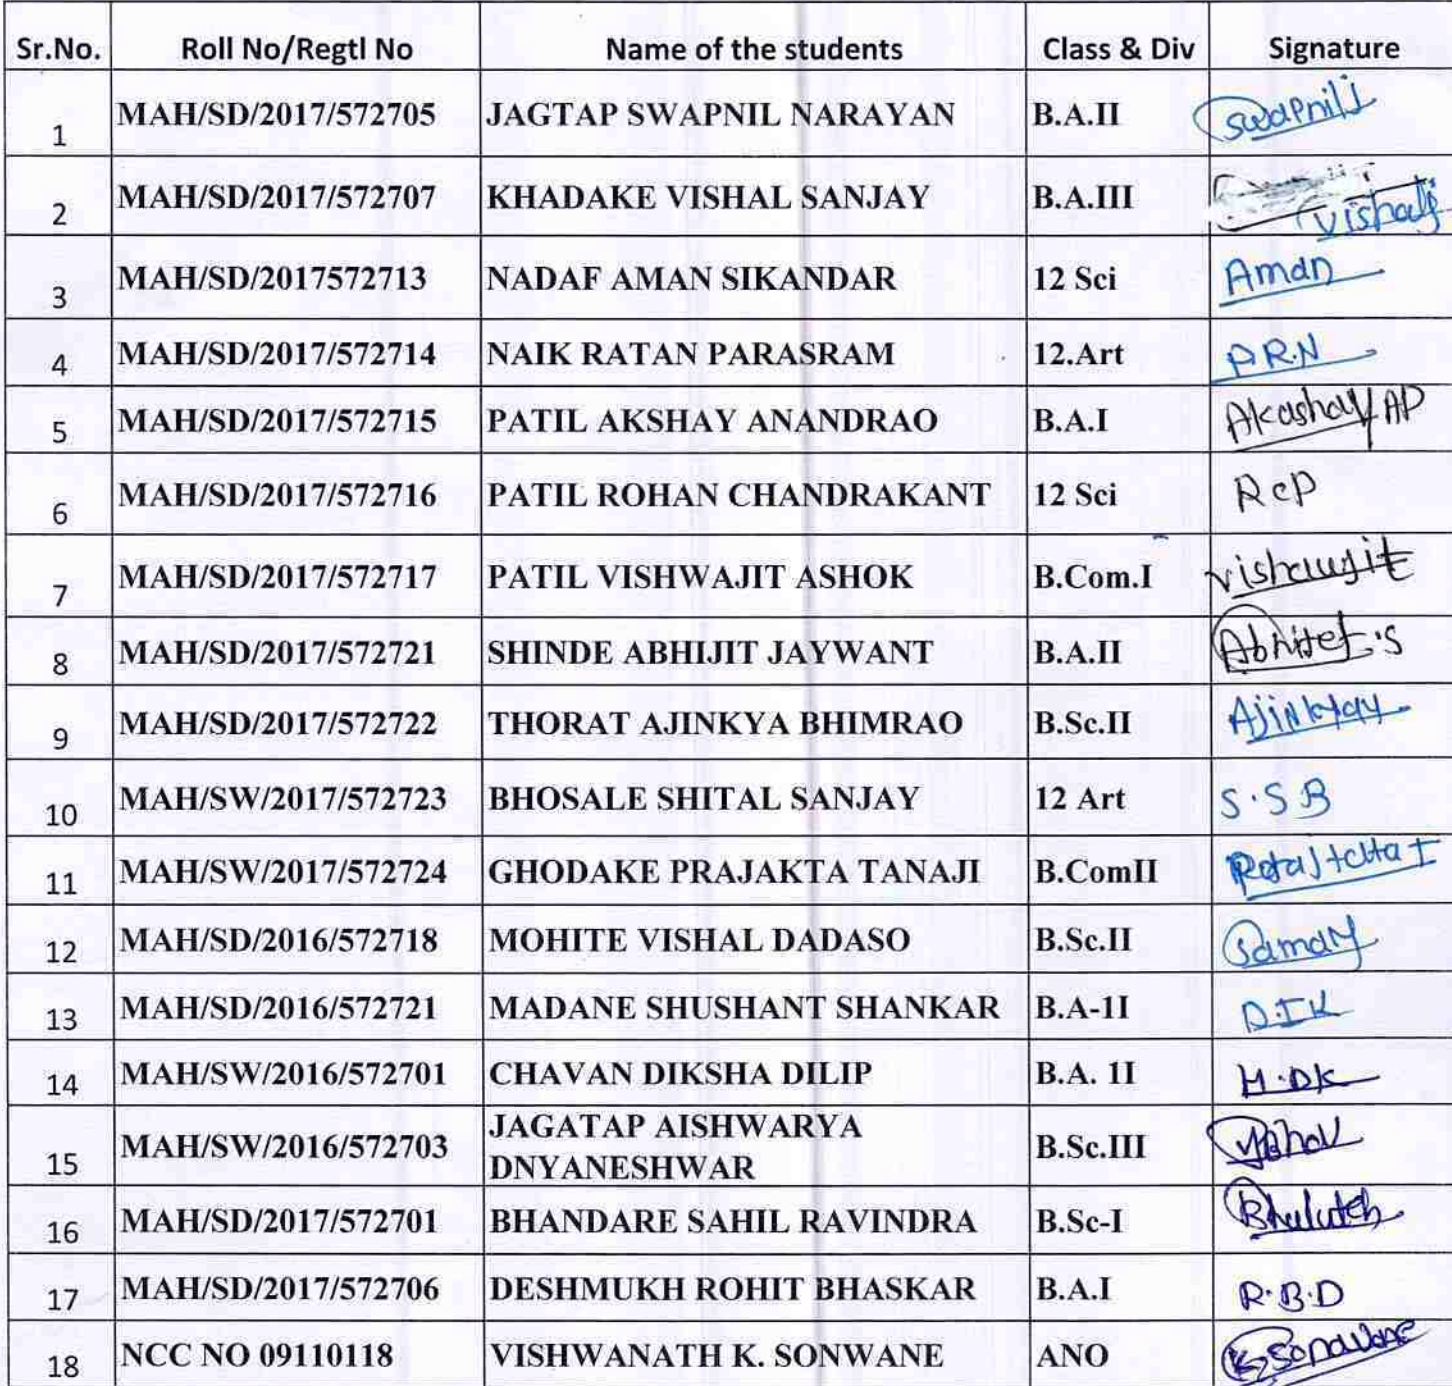 Sr.No. Roll No/Regtl No Name of the students Class & Div Signature
1 MAH/SD/2017/572705 JAGTAP SWAPNIL NARAYAN B.A.II Swapnil J
2 MAH/SD/2017/572707 KHADAKE VISHAL SANJAY B.A.III
3 MAH/SD/2017572713 NADAF AMAN SIKANDAR 12 Sci Aman
4 MAH/SD/2017/572714 NAIK RATAN PARASRAM 12.Art PR.N
5 MAH/SD/2017/572715 PATIL AKSHAY ANANDRAO B.A.I Akashay AP
6 MAH/SD/2017/572716 PATIL ROHAN CHANDRAKANT 12 Sci RcP
7 MAH/SD/2017/572717 PATIL VISHWAJIT ASHOK B.Com.I
8 MAH/SD/2017/572721 SHINDE ABHIJIT JAYWANT B.A.II
9 MAH/SD/2017/572722 THORAT AJINKYA BHIMRAO B.Sc.II
10 MAH/SW/2017/572723 BHOSALE SHITAL SANJAY 12 Art S.S B
11 MAH/SW/2017/572724 GHODAKE PRAJAKTA TANAJI B.ComII
12 MAH/SD/2016/572718 MOHITE VISHAL DADASO B.Sc.II
13 MAH/SD/2016/572721 MADANE SHUSHANT SHANKAR B.A-1I
14 MAH/SW/2016/572701 CHAVAN DIKSHA DILIP B.A. 1I M.DK
15 MAH/SW/2016/572703 JAGATAP AISHWARYA B.Sc.III
DNYANESHWAR
16 MAH/SD/2017/572701 BHANDARE SAHIL RAVINDRA B.Sc-I
17 MAH/SD/2017/572706 DESHMUKH ROHIT BHASKAR B.A.I R.B.D
18 NCC NO 09110118 VISHWANATH K. SONWANE ANO K. Sonawane